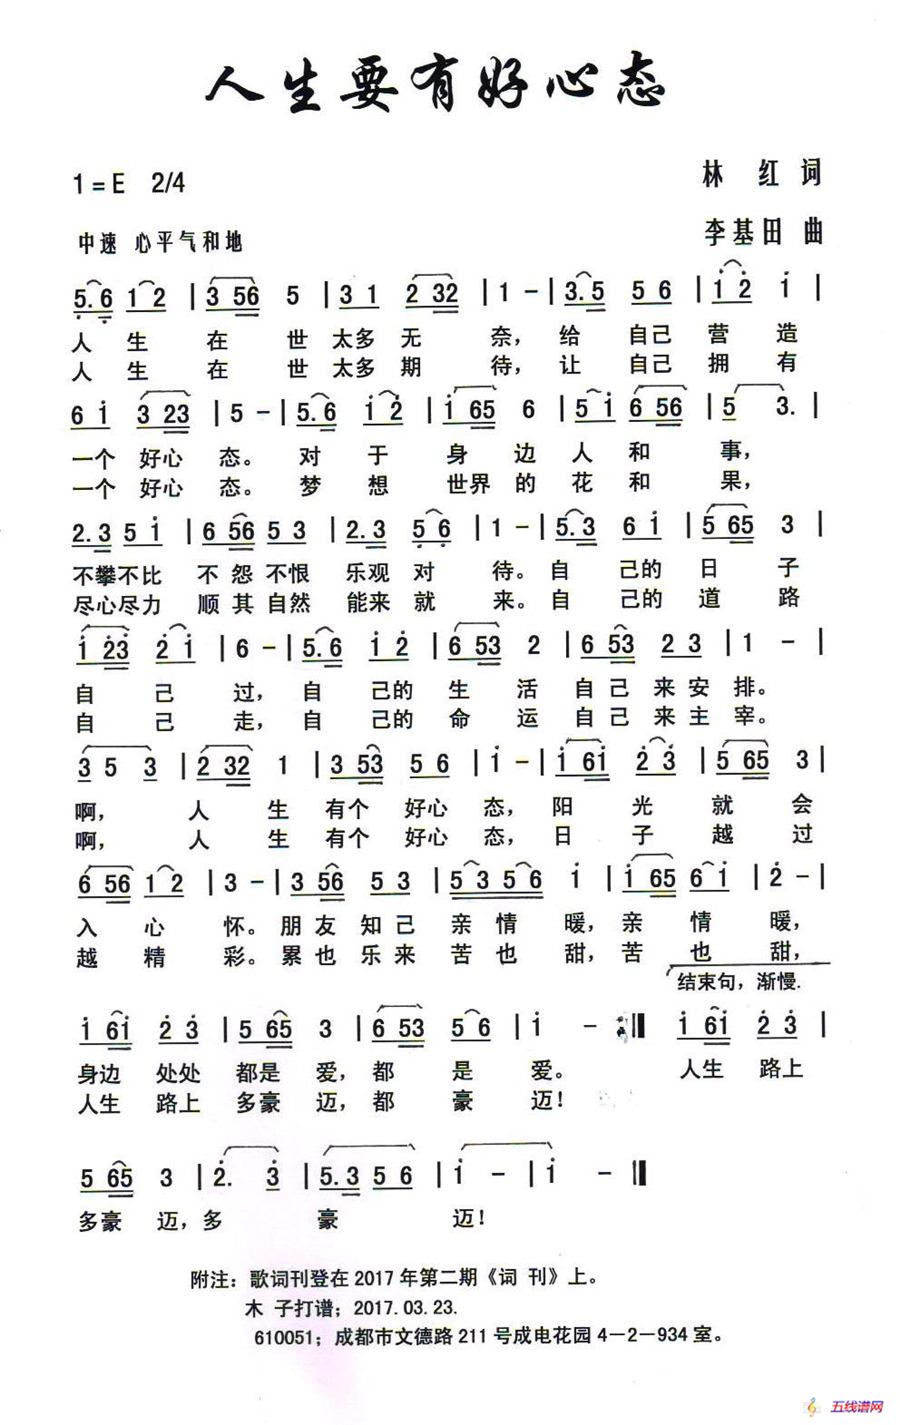 人生要有好心态
1=E 2/4
林 红 词
中速 心平气和地
李基田 曲
5. 6 1 2 | 3 56 5 | 3 1 2 32 | 1 - | 3. 5 5 6 | i 2 i |
人 生 在 世 太多 无 奈, 给 自己 营 造
人 生 在 世 太多 期 待, 让 自己 拥 有
6 i 3 23 | 5 - | 5. 6 i 2 | i 65 6 | 5 i 6 56 | 5 3. |
一个 好心 态。 对 于 身 边 人 和 事,
一个 好心 态。 梦 想 世界 的 花 和 果,
2. 3 5 i | 6 56 5 3 | 2. 3 5 6 | 1 - | 5. 3 6 i | 5 65 3 |
不攀不比 不 怨 不恨 乐观 对 待。 自 己的 日 子
尽心尽力 顺 其 自然 能来 就 来。 自 己的 道 路
i 23 2 i | 6 - | 5. 6 i 2 | 6 53 2 | 6 53 2 3 | 1 - |
自 己 过, 自 己的 生 活 自 己 来 安 排。
自 己 走, 自 己的 命 运 自 己 来 主 宰。
3 5 3 | 2 32 1 | 3 53 5 6 | i - | i 6i 2 3 | 5 65 3 |
啊, 人 生 有个 好心 态, 阳 光 就 会
啊, 人 生 有个 好心 态, 日 子 越 过
6 56 1 2 | 3 - | 3 56 5 3 | 5 3 5 6 i | i 65 6 i | 2 - |
入 心 怀。 朋 友 知 己 亲 情 暖, 亲 情 暖,
越 精 彩。 累 也 乐 来 苦 也 甜, 苦 也 甜,
结束句, 渐慢.
i 6i 2 3 | 5 65 3 | 6 53 5 6 | i - :‖ i 6i 2 3 |
身边 处处 都是 爱, 都 是 爱。 人生 路上
人生 路上 多豪 迈, 都 豪 迈!
5 65 3 | 2. 3 | 5. 3 5 6 | i - | i - ‖
多豪 迈, 多 豪 迈!
附注: 歌词刊登在 2017 年第二期《词 刊》上。
木 子打谱; 2017. 03. 23.
610051; 成都市文德路 211 号成电花园 4-2-934 室。
五线谱网